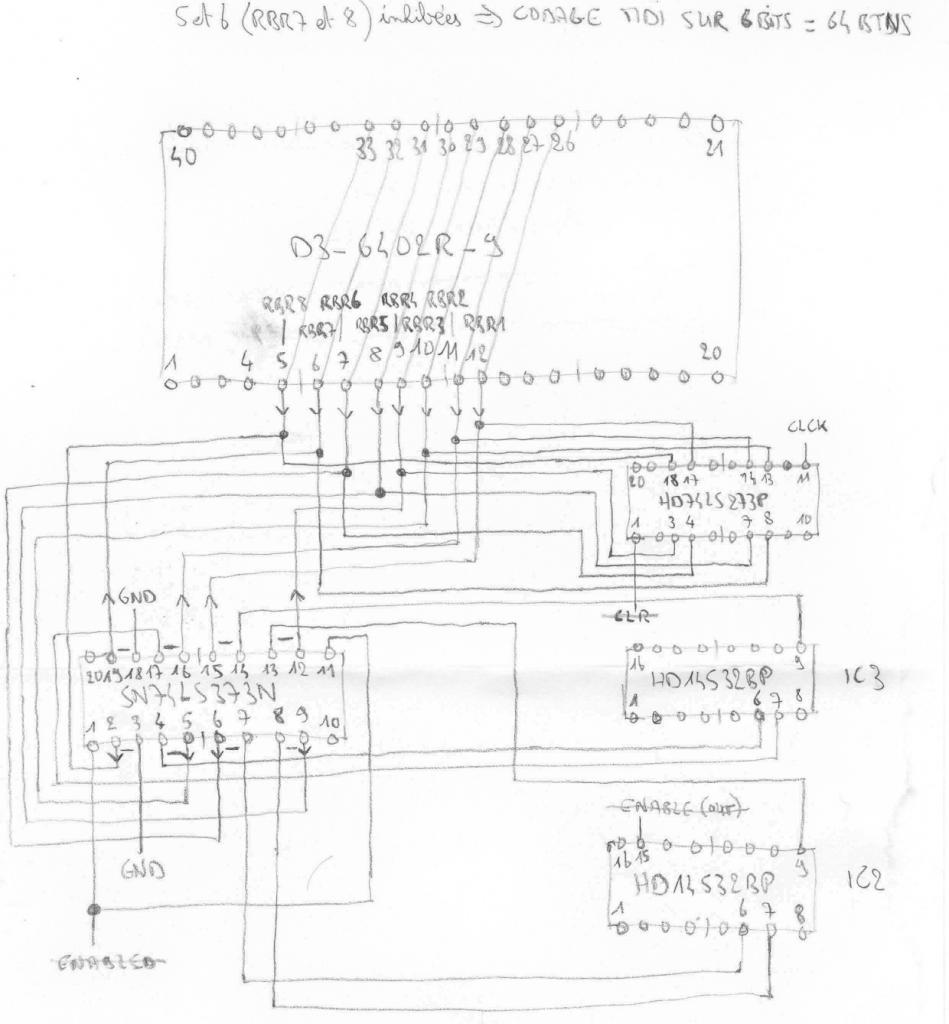 5 et 6 (RBR7 et 8) inhibées => CODAGE MIDI SUR 6 BITS = 64 BTNS
40 33 32 31 30 29 28 27 26 21
D3-6402R-9
RBR8 RBR6 RBR4 RBR2
RBR7 RBR5 RBR3 RBR1
1 4 5 6 7 8 9 10 11 12 20
CLCK
20 18 17 14 13 11
HD74LS273P
1 3 4 7 8 10
CLR
GND
20 19 18 17 16 15 14 13 12 11
SN74LS373N
1 2 3 4 5 6 7 8 9 10
16 9
HD14532BP IC3
1 6 7 8
ENABLE (out)
16 15 9
HD14532BP IC2
1 6 7 8
GND
ENABLED